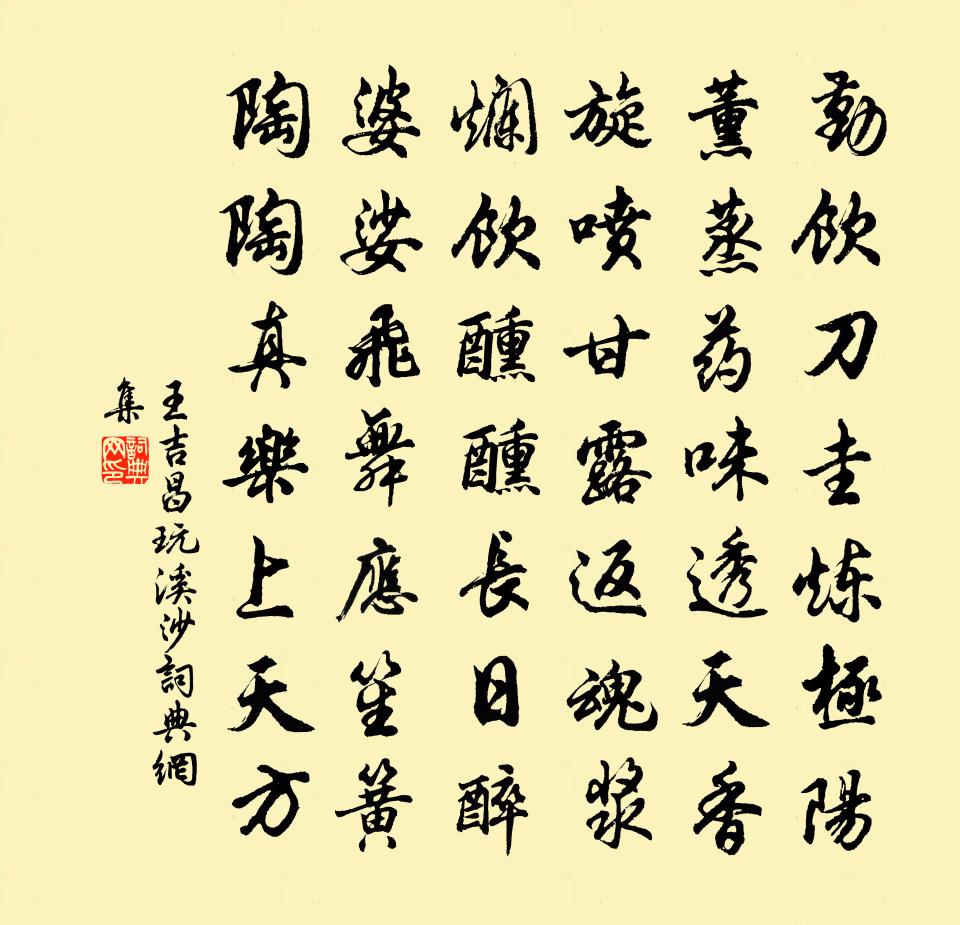 勤飲刀圭炼極陽
薰蒸药味透天香
旋噴甘露返魂漿
爛飲醺醺長日醉
婆娑飛舞應笙簧
陶陶真樂上天方
王吉昌玩溪沙詞典網
集
詞典
网印